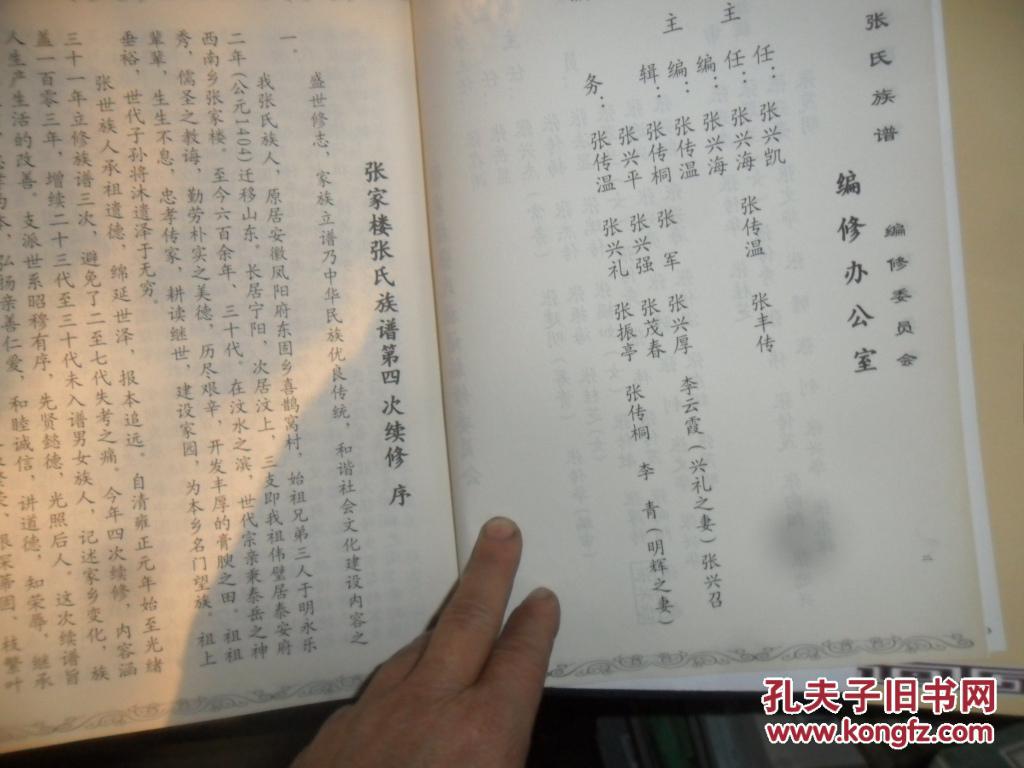 张氏族谱
编修委员会
编修办公室
主 任：张兴凯
主 任：张兴海 张传温 张丰传
主 编：张兴海
编：张传温 张 军 张兴厚 李云霞（兴礼之妻）张兴召
辑：张传桐 张兴强 张茂春
张兴平 张兴礼 张振亭 张传桐 李 青（明辉之妻）
务：张传温
二
张家楼张氏族谱第四次续修 序
盛世修志，家族立谱乃中华民族优良传统，和谐社会文化建设内容之
一。
我张氏族人，原居安徽凤阳府东固乡喜鹊窝村，始祖兄弟三人于明永乐
二年（公元1404）迁移山东。长居宁阳，次居汶上，三支即我祖伟壁居泰安府
西南乡张家楼，至今六百余年，三十代。在汶水之滨，世代宗亲秉泰岳之神
秀，儒圣之教诲，勤劳朴实之美德，历尽艰辛，开发丰厚的膏腴之田。祖祖
辈辈，生生不息，忠孝传家，耕读继世，建设家园，为本乡名门望族。祖上
垂裕，世代子孙将沐遗泽于无穷。
张世族人承祖遗德，绵延世泽，报本追远。自清雍正元年始至光绪
三十一年立修族谱三次，避免了二至七代失考之痛。今年四次续修，内容涵
盖一百零三年，增续二十三代至三十代未入谱男女族人，记述家乡变化，族
人生产生活的改善。支派世系昭穆有序，先贤懿德，光照后人。这次续谱旨
弘扬亲善仁爱，和睦诚信，讲道德，知荣辱，继承
枝繁叶
孔夫子旧书网
www.kongfz.com